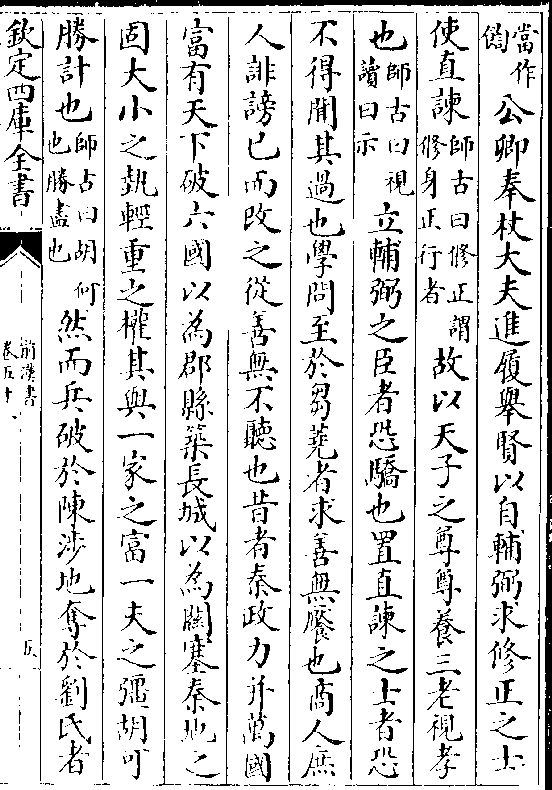 當作餽公卿奉杖大夫進履舉賢以自輔弼求修正之士
使直諫師古曰修正謂修身正行者故以天子之尊尊養三老視孝
也師古曰視讀曰示立輔弼之臣者恐驕也置直諫之士者恐
不得聞其過也學問至於芻蕘者求善無饜也商人庶
人誹謗已而改之從善無不聽也昔者秦政力并萬國
富有天下破六國以為郡縣築長城以為關塞秦地之
固大小之埶輕重之權其與一家之富一夫之彊胡可
勝計也師古曰胡何也勝盡也然而兵破於陳涉地奪於劉氏者
欽定四庫全書
前漢書
卷五十一